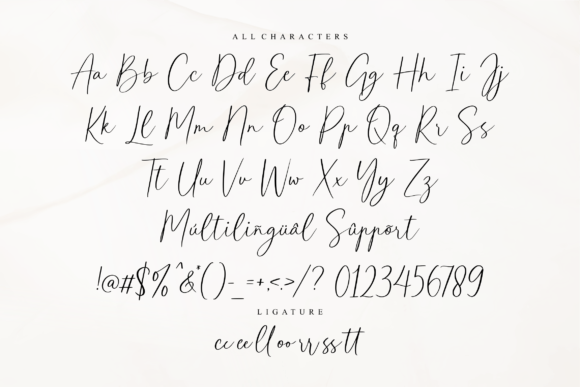 ALL CHARACTERS
Aa Bb Cc Dd Ee Ff Gg Hh Ii Jj
Kk Ll Mm Nn Oo Pp Qq Rr Ss
Tt Uu Vv Ww Xx Yy Zz
Múltiliñgüâl Sûppört
!@#$%^&*()-_=+,<.>/? 0123456789
LIGATURE
cc ee ll oo rr ss tt